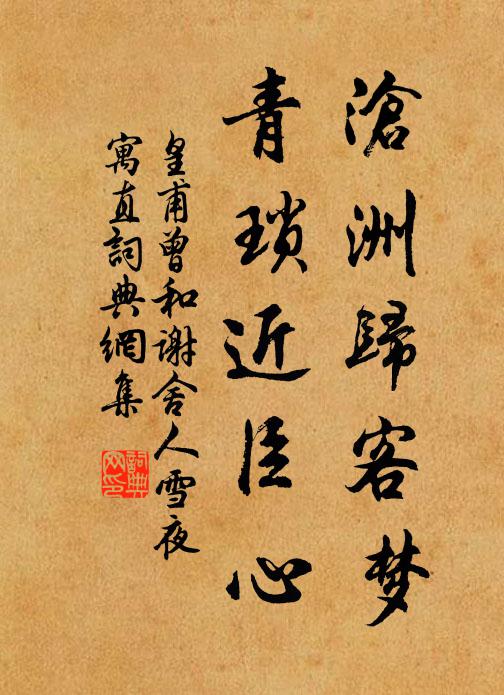 滄洲歸客梦
青瑣近臣心
皇甫曾和谢舍人雪夜
寓直詞典網集
詞典网印